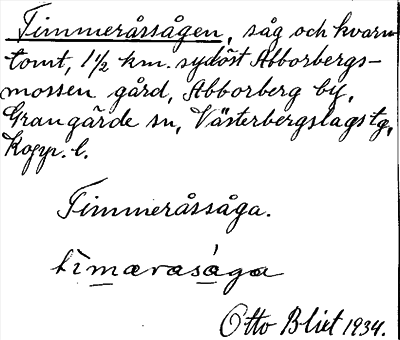 Timmeråssågen, såg och kvarn-
tomt, 1½ km. sydöst Abborbergs-
mossen gård, Abborberg by,
Grangärde sn, Västerbergslags tg,
Kopp. l.
Timmeråssåga.
Otto Blixt 1934.